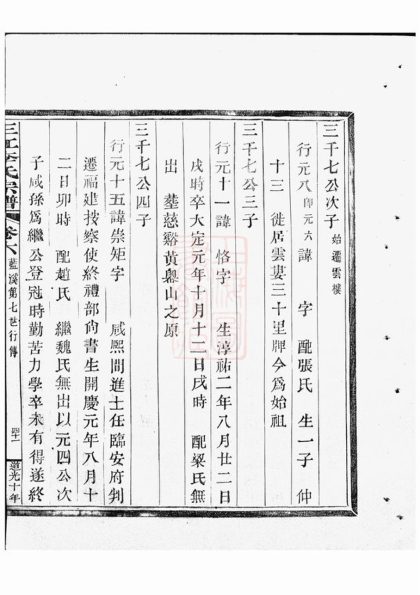 三千七公次子 始遷雲樓
行元八 印元六 諱 字 配張氏 生一子 仲
十三 徙居雲婁三十里牌今爲始祖
三千七公三子
行元十一諱 恪字 生淳祐二年八月廿二日
戌時卒大定元年十月十二日戌時 配梁氏無
出 葬慈谿黃墺山之原
三千七公四子
行元十五諱崇矩字 咸熙間進士在臨安府判
遷福建按察使終禮部尙書生開慶元年八月十
二日卯時 配趙氏 繼魏氏無出以元四公次
子咸孫爲繼公登冠時勤苦力學卒未有得遂終
氏宗譜 卷六 藍溪第七世行傳 道光十年